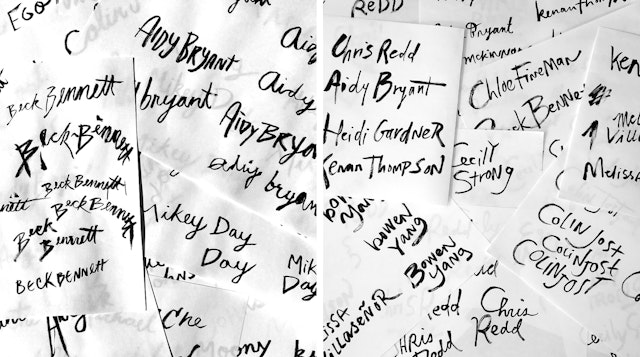 Ego
Colin
C
AIDY BRYANT
Aidy
Beck Bennett
Beck Bennett
Beck Bennett
Beck Bennett
Beck
Bennett
BECK BENNETT
bryant
Aidy
AIDY BRYAN
aidy bryan
Mikey Day
Day
Mik
Day
che
REDD
Chris Redd
Aidy Bryant
Heidi GardneR
Kenan Thompson
Bryant
mckinnon
kenanthomp
Chloe Fineman
Beck Benne
Ken
Mel
Villa
Melissa
Cecily
Strong
bowen
Yang
Bowen
Yang
COLIN JOST
COLIN JOST
COLINJOST
ISSA
VillaseñoR
redd
Chris
Redd
HRis